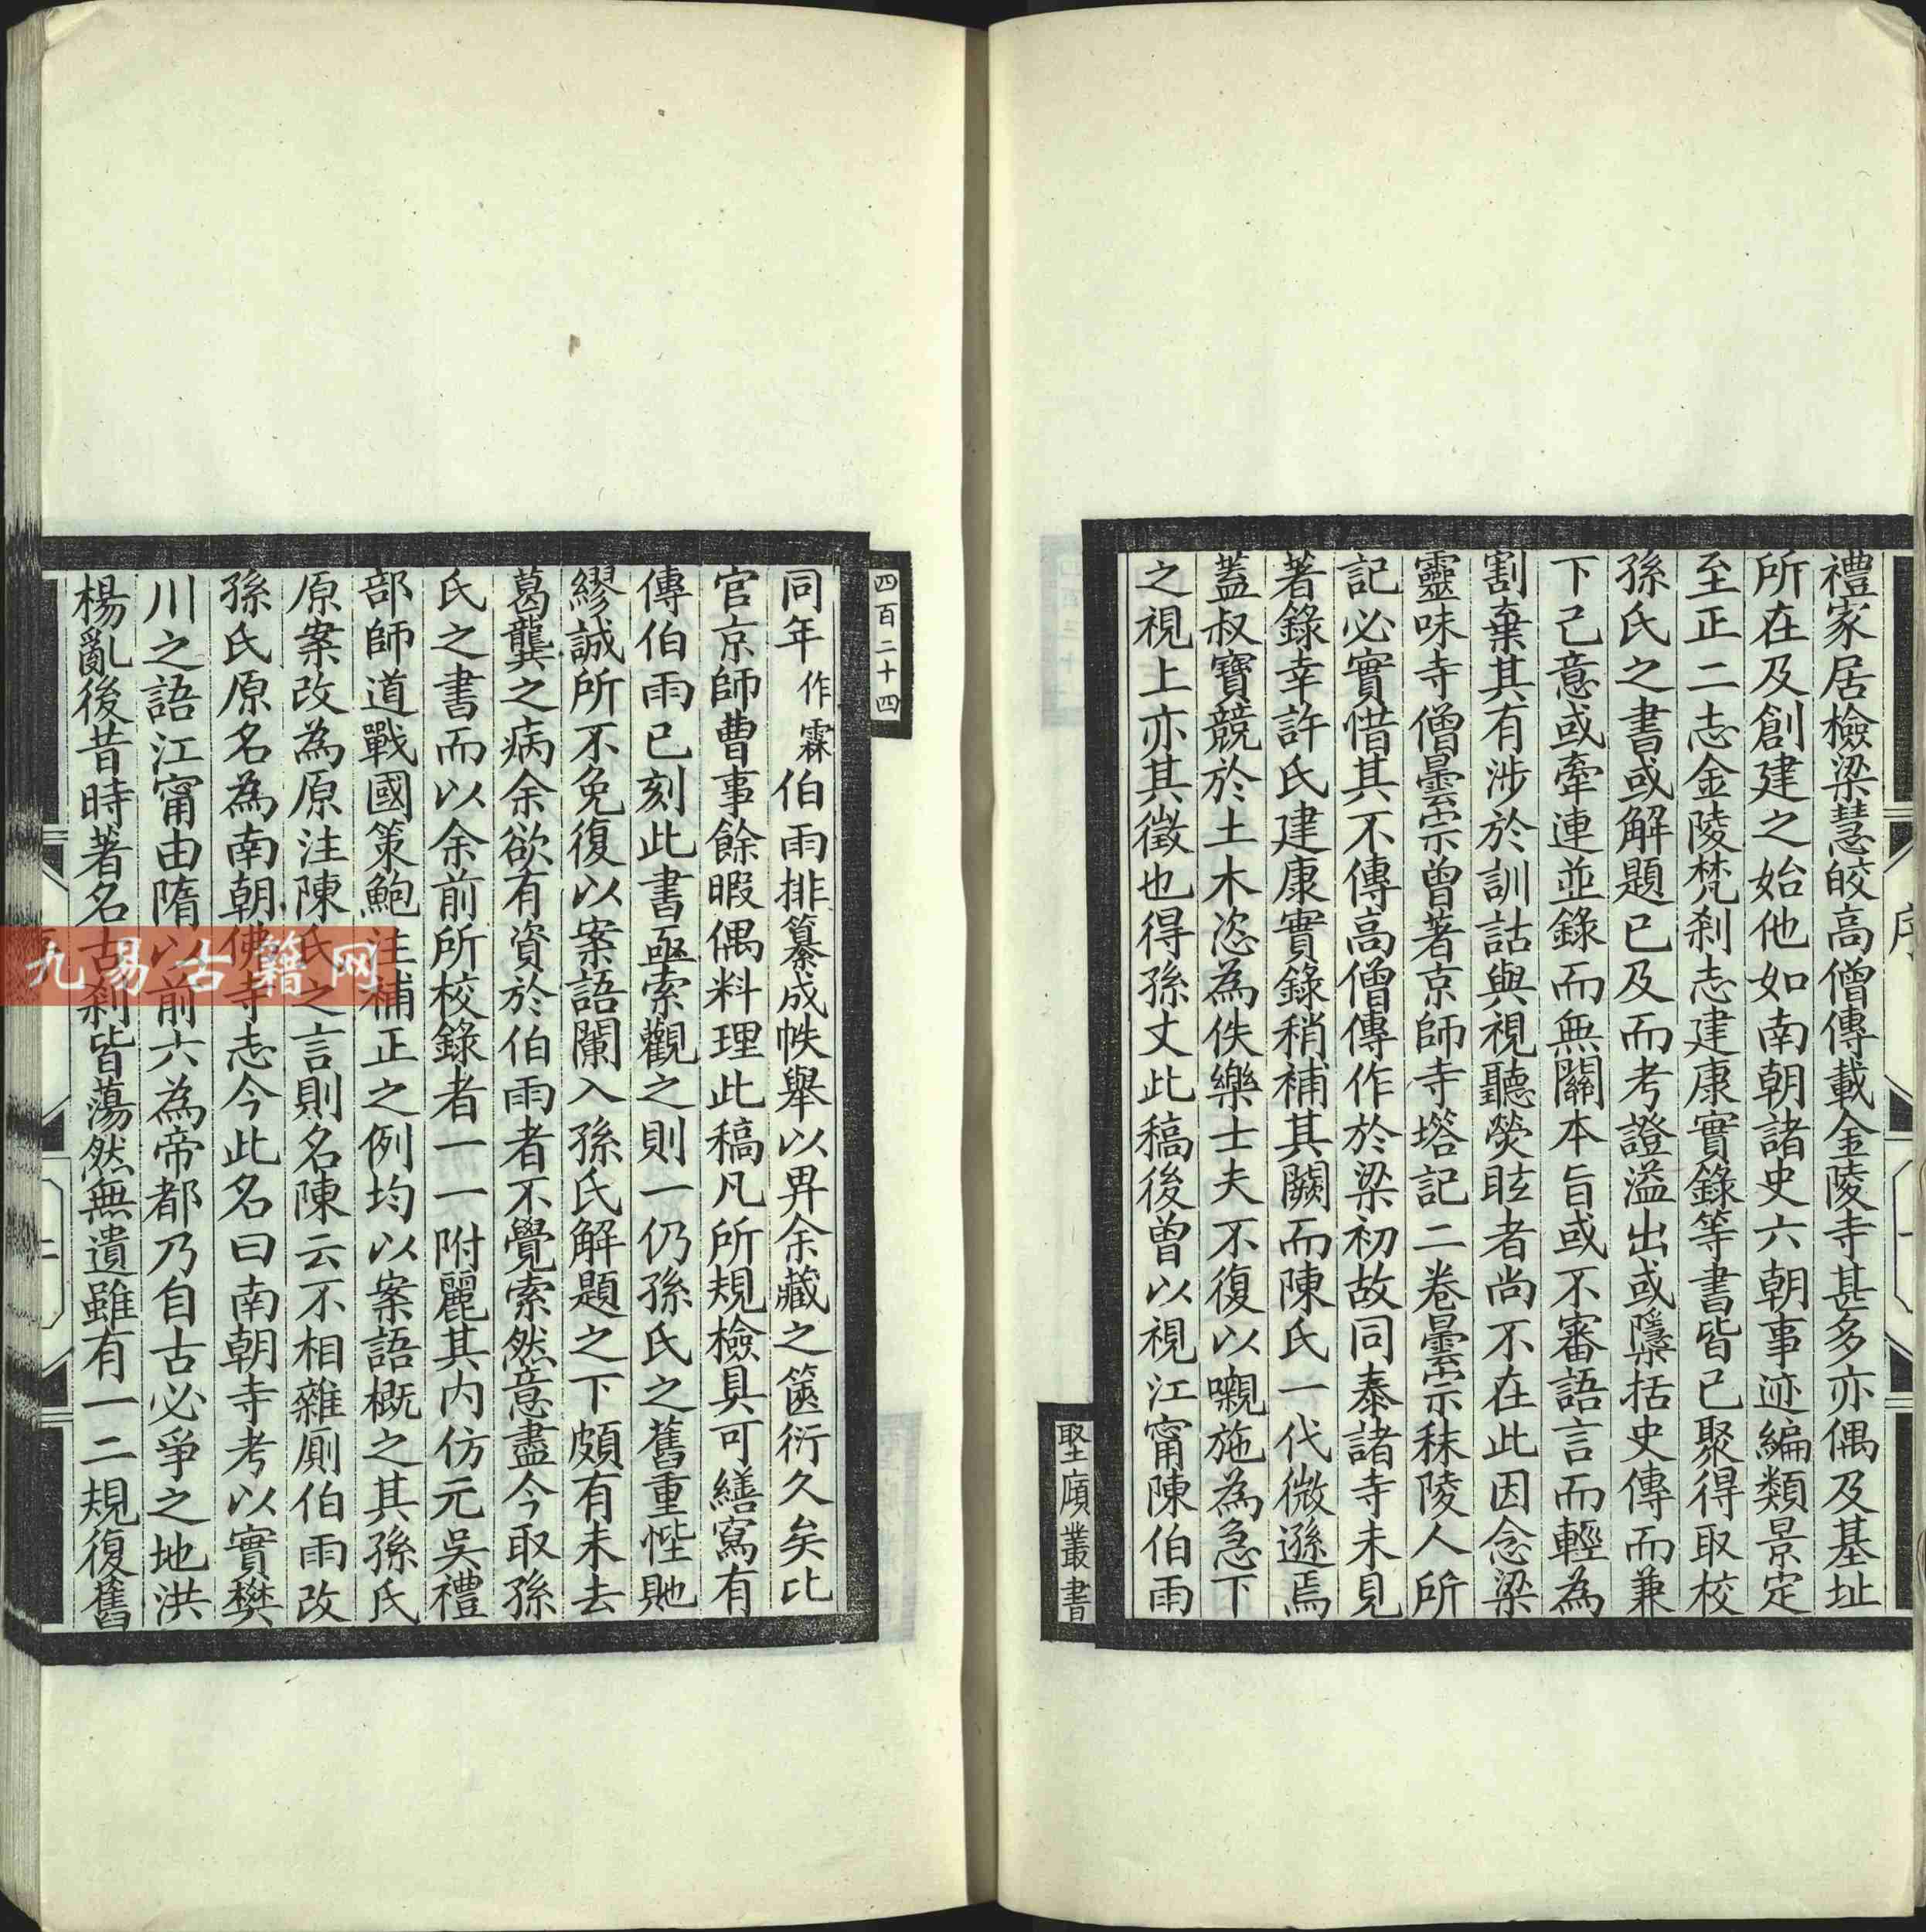 禮家居檢梁慧皎高僧傳載金陵寺甚多亦偶及基址
所在及創建之始他如南朝諸史六朝事迹編類景定
至正二志金陵梵刹志建康實錄等書皆已聚得取校
孫氏之書或解題已及而考證溢出或隱括史傳而兼
下己意或牽連並錄而無關本旨或不審語言而輕為
割棄其有涉於訓詁與視聽熒眩者尚不在此因念梁
靈味寺僧曇宗曾著京師寺塔記二卷曇宗秣陵人所
記必實惜其不傳高僧傳作於梁初故同泰諸寺未見
著錄幸許氏建康實錄稍補其闕而陳氏一代微遜焉
蓋叔寶競於土木恣為佚樂士夫不復以嚫施為急下
之視上亦其徵也得孫丈此稿後曾以視江甯陳伯雨
堅廎叢書
四百二十四
同年作霖伯雨排纂成帙舉以畀余藏之篋衍久矣比
官京師曹事餘暇偶料理此稿凡所規檢具可繕寫有
傳伯雨已刻此書亟索觀之則一仍孫氏之舊重悂貤
繆誠所不免復以案語闌入孫氏解題之下頗有未去
葛龔之病余欲有資於伯雨者不覺索然意盡今取孫
氏之書而以余前所校錄者一一附麗其内仿元吳禮
部師道戰國策鮑注補正之例均以案語概之其孫氏
原案改為原注陳氏之言則名陳云不相雜廁伯雨改
孫氏原名為南朝佛寺志今此名曰南朝寺考以實樊
川之語江甯由隋以前六為帝都乃自古必爭之地洪
楊亂後昔時著名古刹皆蕩然無遺雖有一二規復舊
序
一
二
九易古籍网